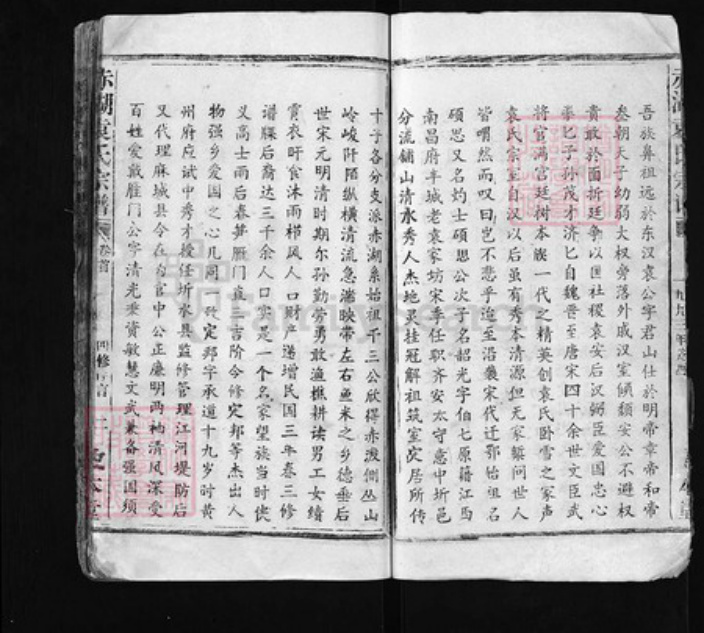 吾族鼻祖远於东汉袁公字君山仕於明帝章帝和帝
叁朝天子幼弱大权旁落外戚汉室倾颓安公不避权
贵敢於面折廷争以国社稷袁安后汉弼臣爱国忠心
拳匕子孙茂才济匕自魏晋至唐宋四十余世文臣武
将官满宫廷树本族一代之精英创袁氏卧雪之家声
袁氏宗至自汉以后虽有秀本清源但无家 问世人
皆喟然而叹曰岂不悲乎迨至洛 宋代迁鄂始祖名
硕思又名灼士硕思公次子名韶光字伯七原籍江西
南昌府丰城老袁家坊宋季任职齐安太守意中圻邑
分流铺山清水秀人杰地灵挂冠解组筑室定居所传
十子各分支派赤湖系始祖千三公欣得赤湖侧丛山
岭峻阡陌纵横清流急湍映带左右鱼米之乡德垂后
世宋元明清时期尔孙勤劳勇敢渔樵耕读男工女绩
霄衣旰食沐雨栉风人口财产递增民国三年春三修
谱牒后裔达三千余人口实是一个名家望族当时佼
义高士雨后春笋雁门直三吉阶令修定邦等杰出人
物强乡爱国之心几同 定邦字承道十九岁时黄
州府应试中秀才授任圻水县监修管理江河堤防后
又代理麻城县令在为官中公正廉明两袖清风深受
百姓爱戴雁门公字清光秉资敏慧文武兼备强国须
赤湖袁氏宗谱
卷首
四修
二
赤湖袁氏宗谱